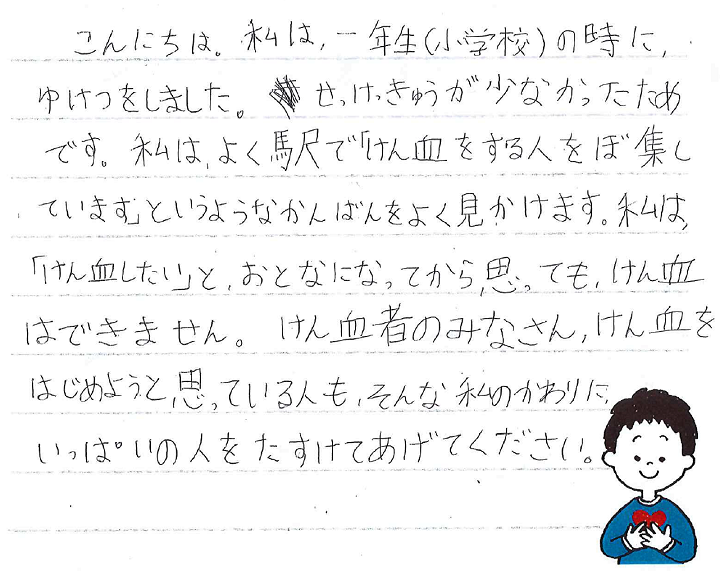 こんにちは。私は,一年生(小学校)の時に,
ゆけつをしました。せっけっきゅうが少なかったため
です。私は,よく駅で「けん血をする人をぼ集し
ています」というようなかんばんをよく見かけます。私は,
「けん血したい」と,おとなになってから,思っても,けん血
はできません。けん血者のみなさん,けん血を
はじめようと,思っている人も,そんな私のかわりに,
いっぱいの人をたすけてあげてください。